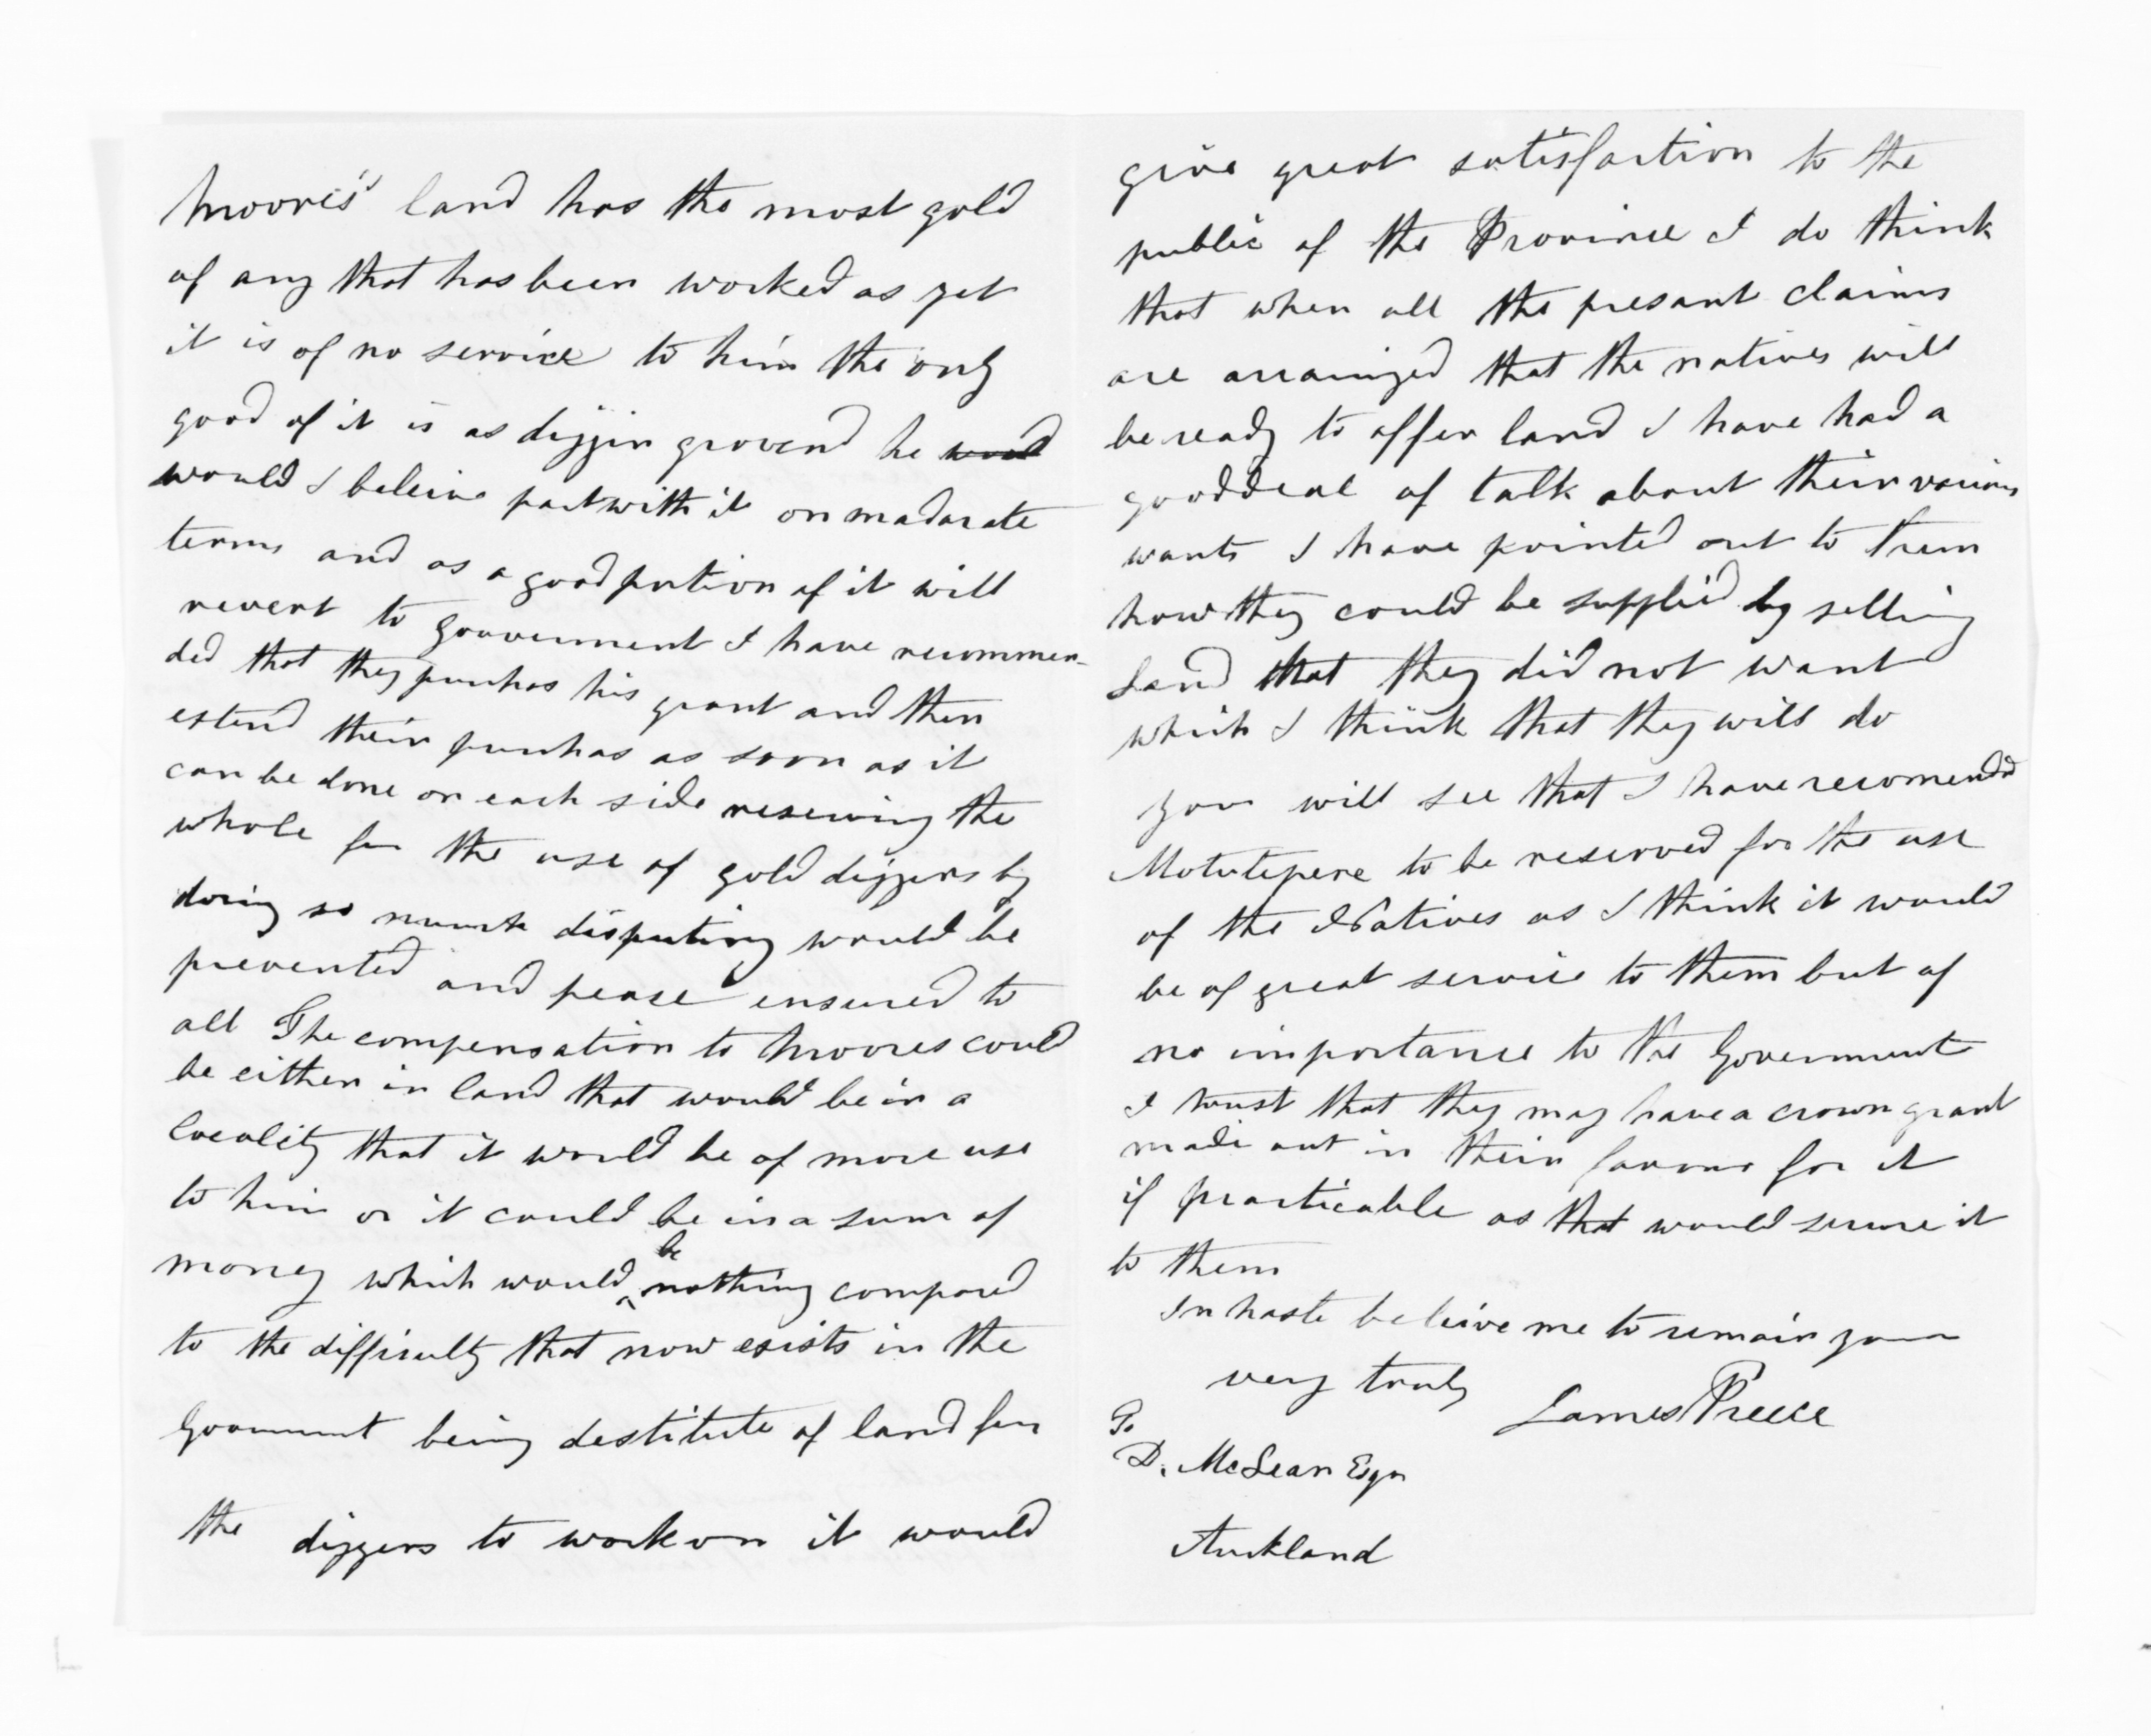 Moores' land has the most gold
of any that has been worked as yet
it is of no service to him the only
good of it is as diggin grovend he
would I beleive part with it on madarate
terms and as a good portion of it will
revert to gouverment I have recommen-
ded that they purchas his grant and then
extend their purchas as soon as it
can be done on each side reserving the
whole for the use of gold diggers by
doing so mutch disputing would be
prevented and pease ensured to
all The compensation to Moores could
be either in land that would be in a
locality that it would be of more use
to him or it could be in a sum of
money which would be nothing compared
to the difficulty that now exists in the
Goverment being destitute of land for
the diggers to work on it would
give great satisfaction to the
public of the Province I do think
that when all the presant claims
are arrainged that the natives will
be ready to offer land I have had a
good deal of talk about their various
wants I have pointed out to them
how they could be supplied by selling
Land that they did not want
which I think that they will do
you will see that I have recomended
Motutepere to be reserved for the use
of the Natives as I think it would
be of great servise to them but of
no importance to the Goverment
I trust that they may have a crown grant
made out in their favour for it
if practicable as that would secure it
to them
In haste beleive me to remain your
very truly James Preece
To
D. McLean Esqr
Auckland